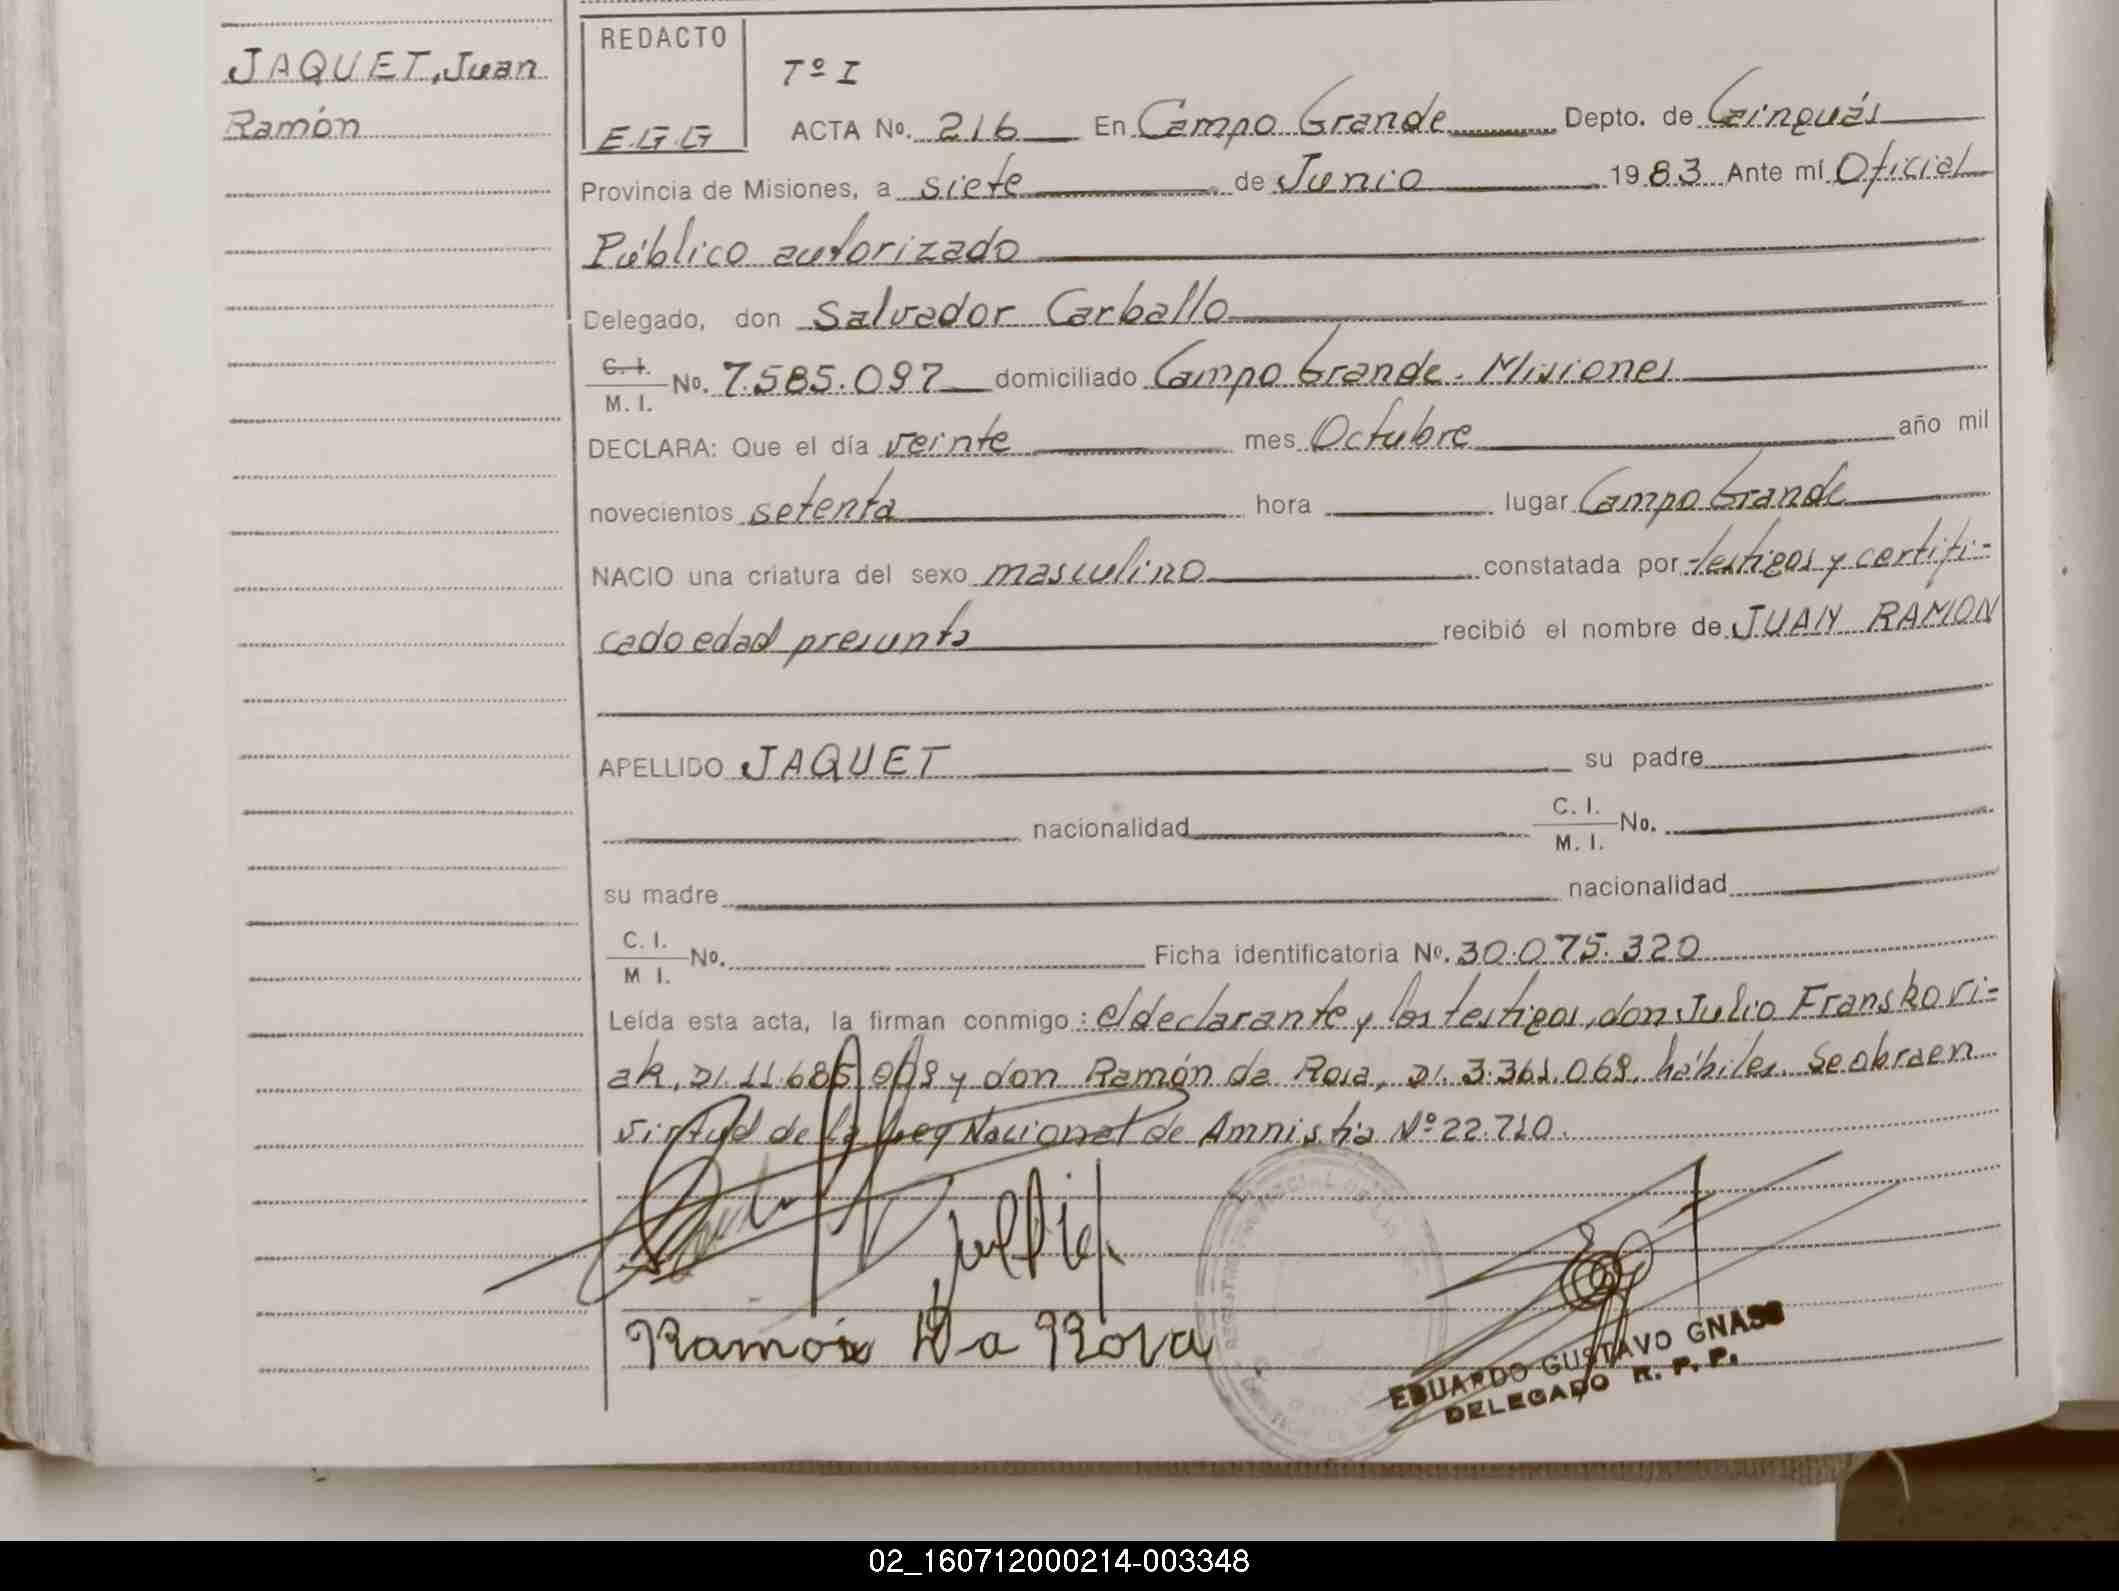 JAQUET, Juan
Ramón
REDACTO
E.G.G
Tº I
ACTA No. 216 En Campo Grande Depto. de Cainguás
Provincia de Misiones, a siete de Junio 1983 Ante mí Oficial
Público autorizado
Delegado, don Salvador Carballo
C. I.
M. I. No. 7.585.097 domiciliado Campo Grande. Misiones
DECLARA: Que el día veinte mes Octubre año mil
novecientos setenta hora lugar Campo Grande
NACIO una criatura del sexo masculino constatada por testigos y certifi-
cado edad presunta recibió el nombre de JUAN RAMON
APELLIDO JAQUET su padre
nacionalidad C. I.
M. I. No.
su madre nacionalidad
C. I.
M I. No. Ficha identificatoria No. 30.075.320
Leída esta acta, la firman conmigo: el declarante y los testigos, don Julio Franskovi-
ak, DI. 11.685.009 y don Ramón da Rosa, DI. 3.361.069, hábiles. Se obra en
virtud de la Ley Nacional de Amnistía Nº 22.710.
Ramón Da Rosa
EDUARDO GUSTAVO GNASS
DELEGADO R. P. P.
02_160712000214-003348